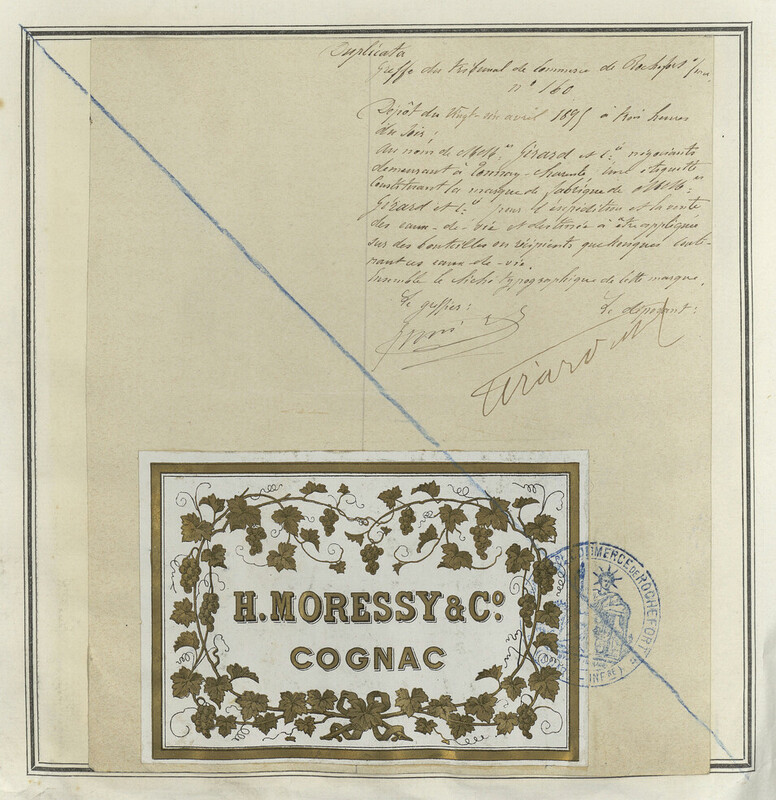 Duplicata
Greffe du tribunal de Commerce de Rochefort s/mer
n° 160
Dépôt du vingt-un avril 1895 à trois heures
du soir;
Au nom de MM.rs Girard et C.ie négociants
demeurant à Tonnay-Charente, d'une étiquette
constituant la marque de fabrique de MM.rs
Girard et C.ie pour l'expédition et la vente
des eaux-de-vie et destinée à être appliquée
sur des bouteilles ou récipients quelconques conte-
nant ces eaux-de-vie.
Ensemble le cliché typographique de cette marque.
Le greffier: Le déposant:
Girard
H. MORESSY & Co.
COGNAC
COMMERCE DE ROCHEFORT
INFRE